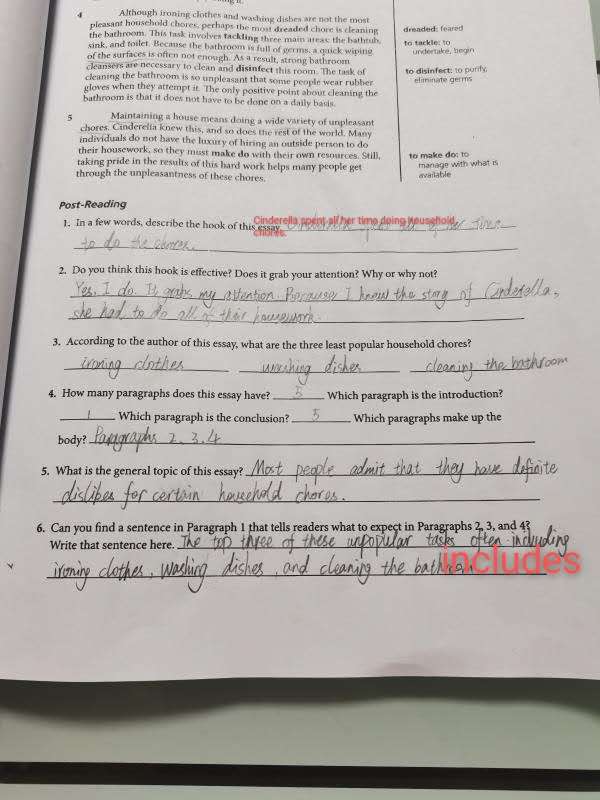 4 Although ironing clothes and washing dishes are not the most
pleasant household chores, perhaps the most dreaded chore is cleaning
the bathroom. This task involves tackling three main areas: the bathtub,
sink, and toilet. Because the bathroom is full of germs, a quick wiping
of the surfaces is often not enough. As a result, strong bathroom
cleansers are necessary to clean and disinfect this room. The task of
cleaning the bathroom is so unpleasant that some people wear rubber
gloves when they attempt it. The only positive point about cleaning the
bathroom is that it does not have to be done on a daily basis.
dreaded: feared
to tackle: to
undertake, begin
to disinfect: to purify,
eliminate germs
5 Maintaining a house means doing a wide variety of unpleasant
chores. Cinderella knew this, and so does the rest of the world. Many
individuals do not have the luxury of hiring an outside person to do
their housework, so they must make do with their own resources. Still,
taking pride in the results of this hard work helps many people get
through the unpleasantness of these chores.
to make do: to
manage with what is
available
Post-Reading
1. In a few words, describe the hook of this essay.
Cinderella spent all her time doing household
chores.
all of her time
to do the chores.
2. Do you think this hook is effective? Does it grab your attention? Why or why not?
Yes, I do. It grabs my attention. Because I know the story of Cinderella,
she had to do all of their housework.
3. According to the author of this essay, what are the three least popular household chores?
ironing clothes washing dishes cleaning the bathroom
4. How many paragraphs does this essay have? 5 Which paragraph is the introduction?
1 Which paragraph is the conclusion? 5 Which paragraphs make up the
body? Paragraphs 2, 3, 4
5. What is the general topic of this essay? Most people admit that they have definite
dislikes for certain household chores.
6. Can you find a sentence in Paragraph 1 that tells readers what to expect in Paragraphs 2, 3, and 4?
Write that sentence here. The top three of these unpopular tasks often including
includes
ironing clothes, washing dishes, and cleaning the bathroom